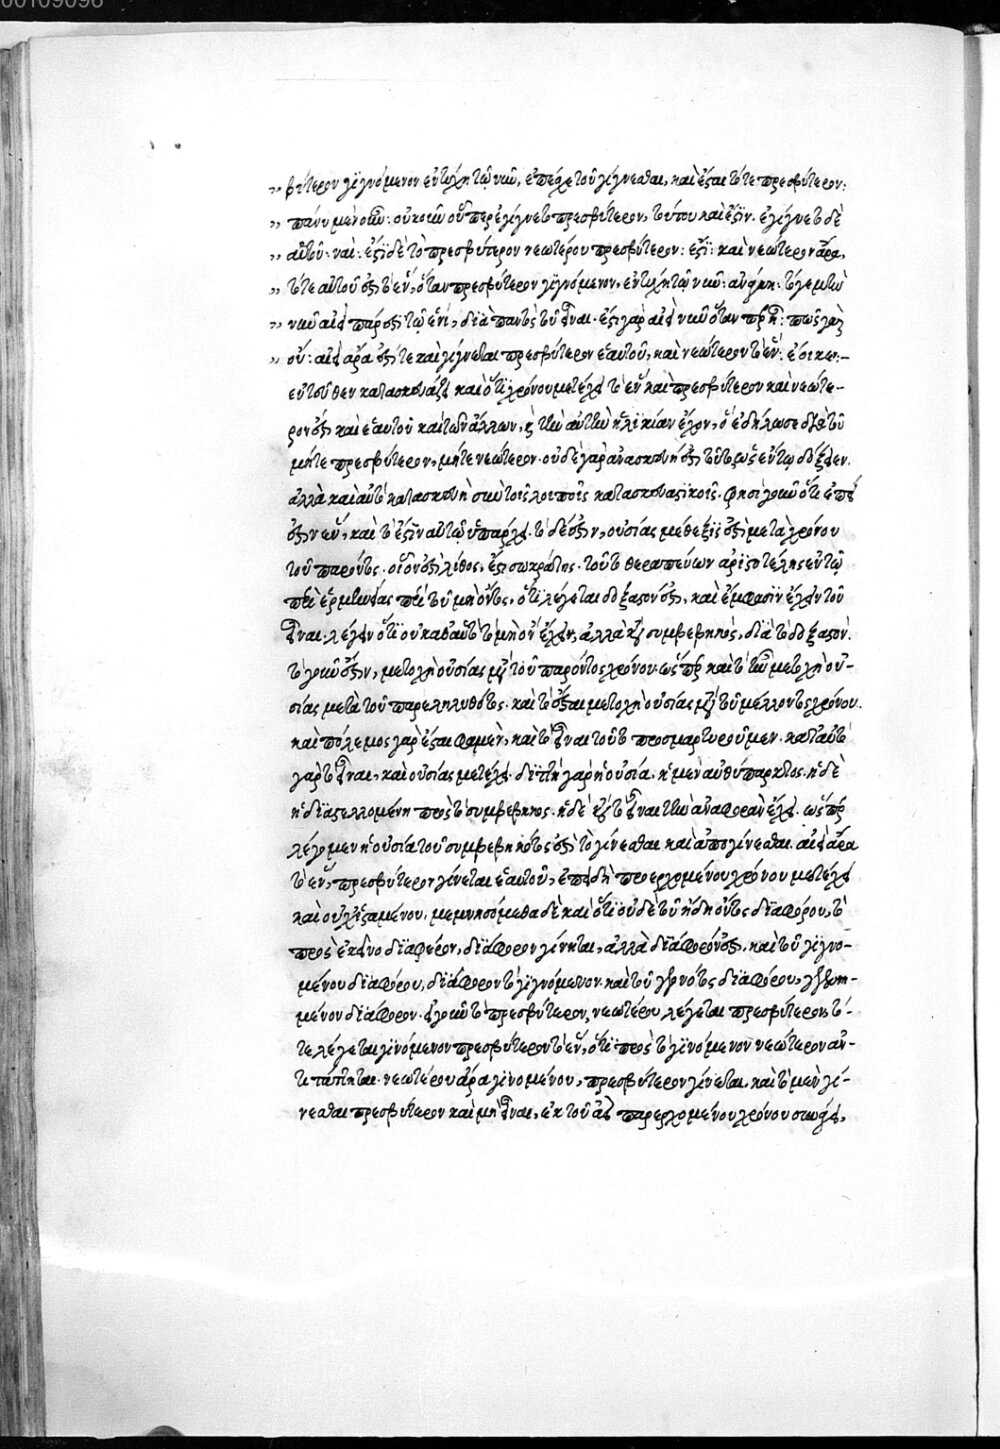 βύτερον γιγνόμενον ἐντύχῃ τῷ νῦν, ἐπέσχε τοῦ γίγνεσθαι, καὶ ἔσται τότε πρεσβύτερον:
πάνυ μὲν οὖν: οὐκοῦν οὗπερ ἐγίγνετο πρεσβύτερον, τούτου καὶ ἔστιν· ἐγίγνετο δὲ
αὑτοῦ: ναί: ἔστι δὲ τὸ πρεσβύτερον νεωτέρου πρεσβύτερον: ἔστι: καὶ νεώτερον ἄρα,
τότε αὑτοῦ ἐστι τὸ ἕν, ὅταν πρεσβύτερον γιγνόμενον, ἐντύχῃ τῷ νῦν: ἀνάγκη: τό γε μὴν
νῦν ἀεὶ πάρεστι τῷ ἑνί, διὰ παντὸς τοῦ εἶναι· ἔστι γὰρ ἀεὶ νῦν ὅταν περ ᾖ: πῶς γὰρ
οὔ: ἀεὶ ἄρα ἐστί τε καὶ γίγνεται πρεσβύτερον ἑαυτοῦ, καὶ νεώτερον τὸ ἕν: ἔοικεν:–
ἐντεῦθεν κατασκευάζει καὶ ὅτι χρόνου μετέχει τὸ ἓν καὶ πρεσβύτερον καὶ νεώτε-
ρόν ἐστι, καὶ ἑαυτοῦ καὶ τῶν ἄλλων, καὶ τὴν αὐτὴν ἡλικίαν ἔχον, ὃ ἐδήλωσε διὰ τοῦ
μήτε πρεσβύτερον, μήτε νεώτερον· οὐδὲ γὰρ ἀνασκευή ἐστι τοῦτο, ὡς ἐν τῳ δόξειεν.
ἀλλὰ καὶ αὐτὸ κατασκευὴ σὺν τοῖς λοιποῖς κατασκευαστικοῖς. φησὶ γοῦν ὅτι ἐπεί
ἐστιν ἕν, καὶ τὸ ἔστιν αὐτῷ ὑπάρχει· τὸ δὲ ἔστιν, οὐσίας μέθεξίς ἐστι μετὰ χρόνου
τοῦ παρόντος. οἷον ἐστὶ λίθος, ἔστι σωκράτης. τοῦτο θεραπεύων ἀριστοτέλης ἐν τῷ
περὶ ἑρμηνείας περὶ τοῦ μὴ ὄντος, ὅτι λέγεται δοξαστόν ἐστι, καὶ ἔμφασιν ἔχειν τοῦ
εἶναι. λέγει ὅτι οὐ καθ' αὑτὸ τὸ μὴ ὂν ἔχειν, ἀλλὰ κατὰ συμβεβηκός, διὰ τὸ δοξαστόν.
τὸ γοῦν ἔστιν, μετοχὴ οὐσίας μετὰ τοῦ παρόντος χρόνου ὥσπερ καὶ τὸ ἦν μετοχὴ οὐ-
σίας μετὰ τοῦ παρεληλυθότος· καὶ τὸ ἔσται μετοχὴ οὐσίας μετὰ τοῦ μέλλοντος χρόνου.
καὶ πόλεμος γὰρ ἔσται φαμέν, καὶ τὸ εἶναι τούτῳ προσμαρτυροῦμεν. κατ' αὐτὸ
γὰρ τὸ εἶναι, καὶ οὐσίας μετέχει. διττὴ γὰρ ἡ οὐσία. ἡ μὲν αὐθύπαρκτος. ἡ δὲ
ἡ διαστελλομένη πρὸς τὸ συμβεβηκός. ἡ δὲ κατὰ τὸ εἶναι τὴν ἀναφορὰν ἔχει. ὥσπερ
λέγομεν ἡ οὐσία τοῦ συμβεβηκότος ἐστὶ τὸ γίνεσθαι καὶ ἀπογίνεσθαι. ἀεὶ ἄρα
τὸ ἕν, πρεσβύτερον γίνεται ἑαυτοῦ, ἐπειδὴ προερχομένου χρόνου μετέχει
καὶ οὐχ ἱσταμένου. μεμνησόμεθα δὲ καὶ ὅτι οὐδὲ τοῦ ἤδη ὄντος διαφόρου, τὸ
πρὸς ἐκεῖνο διαφέρον, διάφορον γίνηται, ἀλλὰ διάφορόν ἐστι. καὶ τοῦ γιγνο-
μένου διαφόρου, διάφορον τὸ γιγνόμενον· καὶ τοῦ γεγονότος διαφόρου, γεγενη-
μένον διάφορον. εἰ γοῦν τὸ πρεσβύτερον, νεωτέρου λέγεται πρεσβύτερον, τό-
τε λέγεται γινόμενον πρεσβύτερον τὸ ἕν, ὅτι πρὸς τὸ γινόμενον νεώτερον ἀν-
τιτάττηται. νεωτέρου ἄρα γινομένου, πρεσβύτερον γίνεται. καὶ τὸ μὲν γί-
νεσθαι πρεσβύτερον καὶ μὴ εἶναι, ἐκ τοῦ ἀεὶ παρερχομένου χρόνου συνάγει,